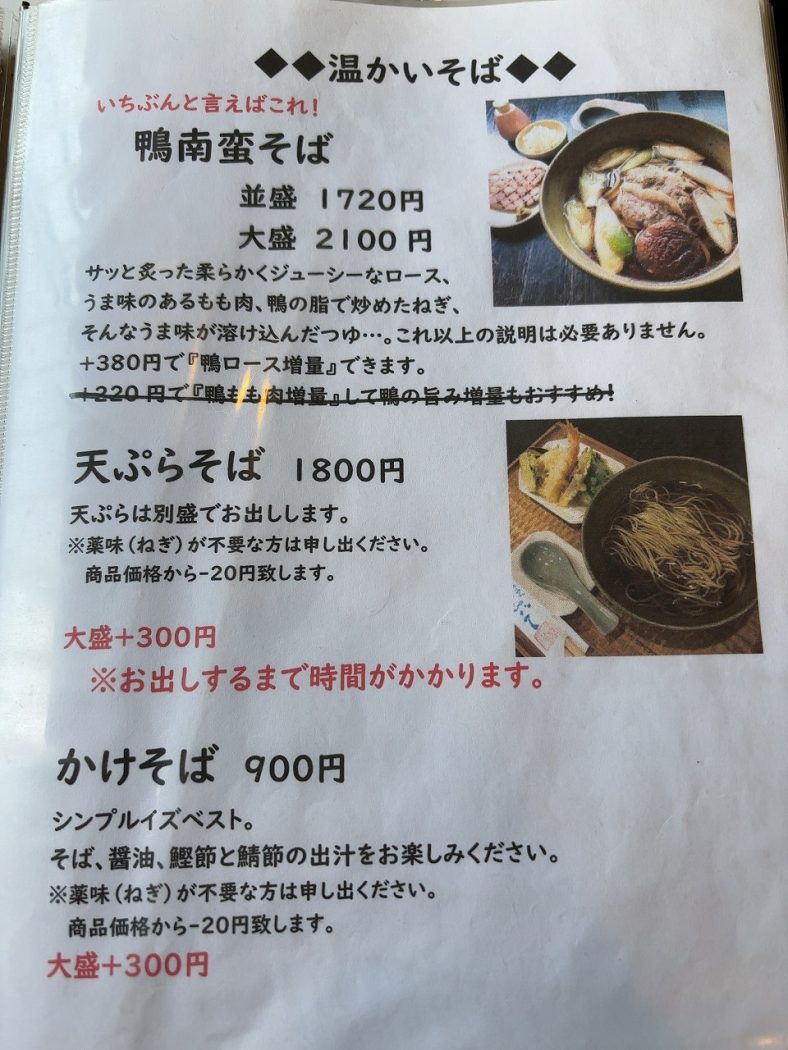 ◆◆温かいそば◆◆
いちぶんと言えばこれ！
鴨南蛮そば
並盛 1720円
大盛 2100円
サッと炙った柔らかくジューシーなロース、
うま味のあるもも肉、鴨の脂で炒めたねぎ、
そんなうま味が溶け込んだつゆ…。これ以上の説明は必要ありません。
+380円で『鴨ロース増量』できます。
+220円で『鴨もも肉増量』して鴨の旨み増量もおすすめ！
天ぷらそば 1800円
天ぷらは別盛でお出しします。
※薬味（ねぎ）が不要な方は申し出ください。
商品価格から-20円致します。
大盛+300円
※お出しするまで時間がかかります。
かけそば 900円
シンプルイズベスト。
そば、醤油、鰹節と鯖節の出汁をお楽しみください。
※薬味（ねぎ）が不要な方は申し出ください。
商品価格から-20円致します。
大盛+300円